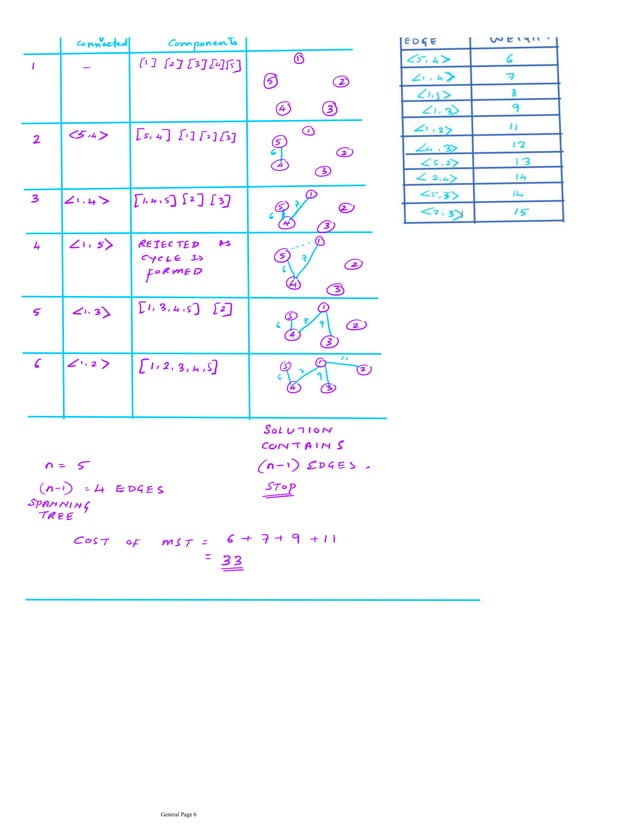 connected Components
1 – [1] [2] [3] [4] [5] 1 5 2 4 3
2 <5,4> [5,4] [1] [2] [3] 1 5 6 2 4 3
3 <1,4> [1,4,5] [2] [3] 1 5 7 2 6 4 3
4 <1,5> REJECTED AS CYCLE IS FORMED 1 5 7 2 6 4 3
5 <1,3> [1,3,4,5] [2] 1 5 7 6 9 2 4 3
6 <1,2> [1,2,3,4,5] 1 11 5 7 2 6 9 4 3
SOLUTION
CONTAINS
n = 5 (n-1) EDGES.
(n-1) = 4 EDGES STOP
SPANNING
TREE
COST OF MST = 6 + 7 + 9 + 11
= 33
EDGE WEIGHT
<5,4> 6
<1,4> 7
8
<1,3> 9
<1,2> 11
<4,3> 12
<5,2> 13
<2,4> 14
<5,3> 14
<2,3> 15
General Page 6